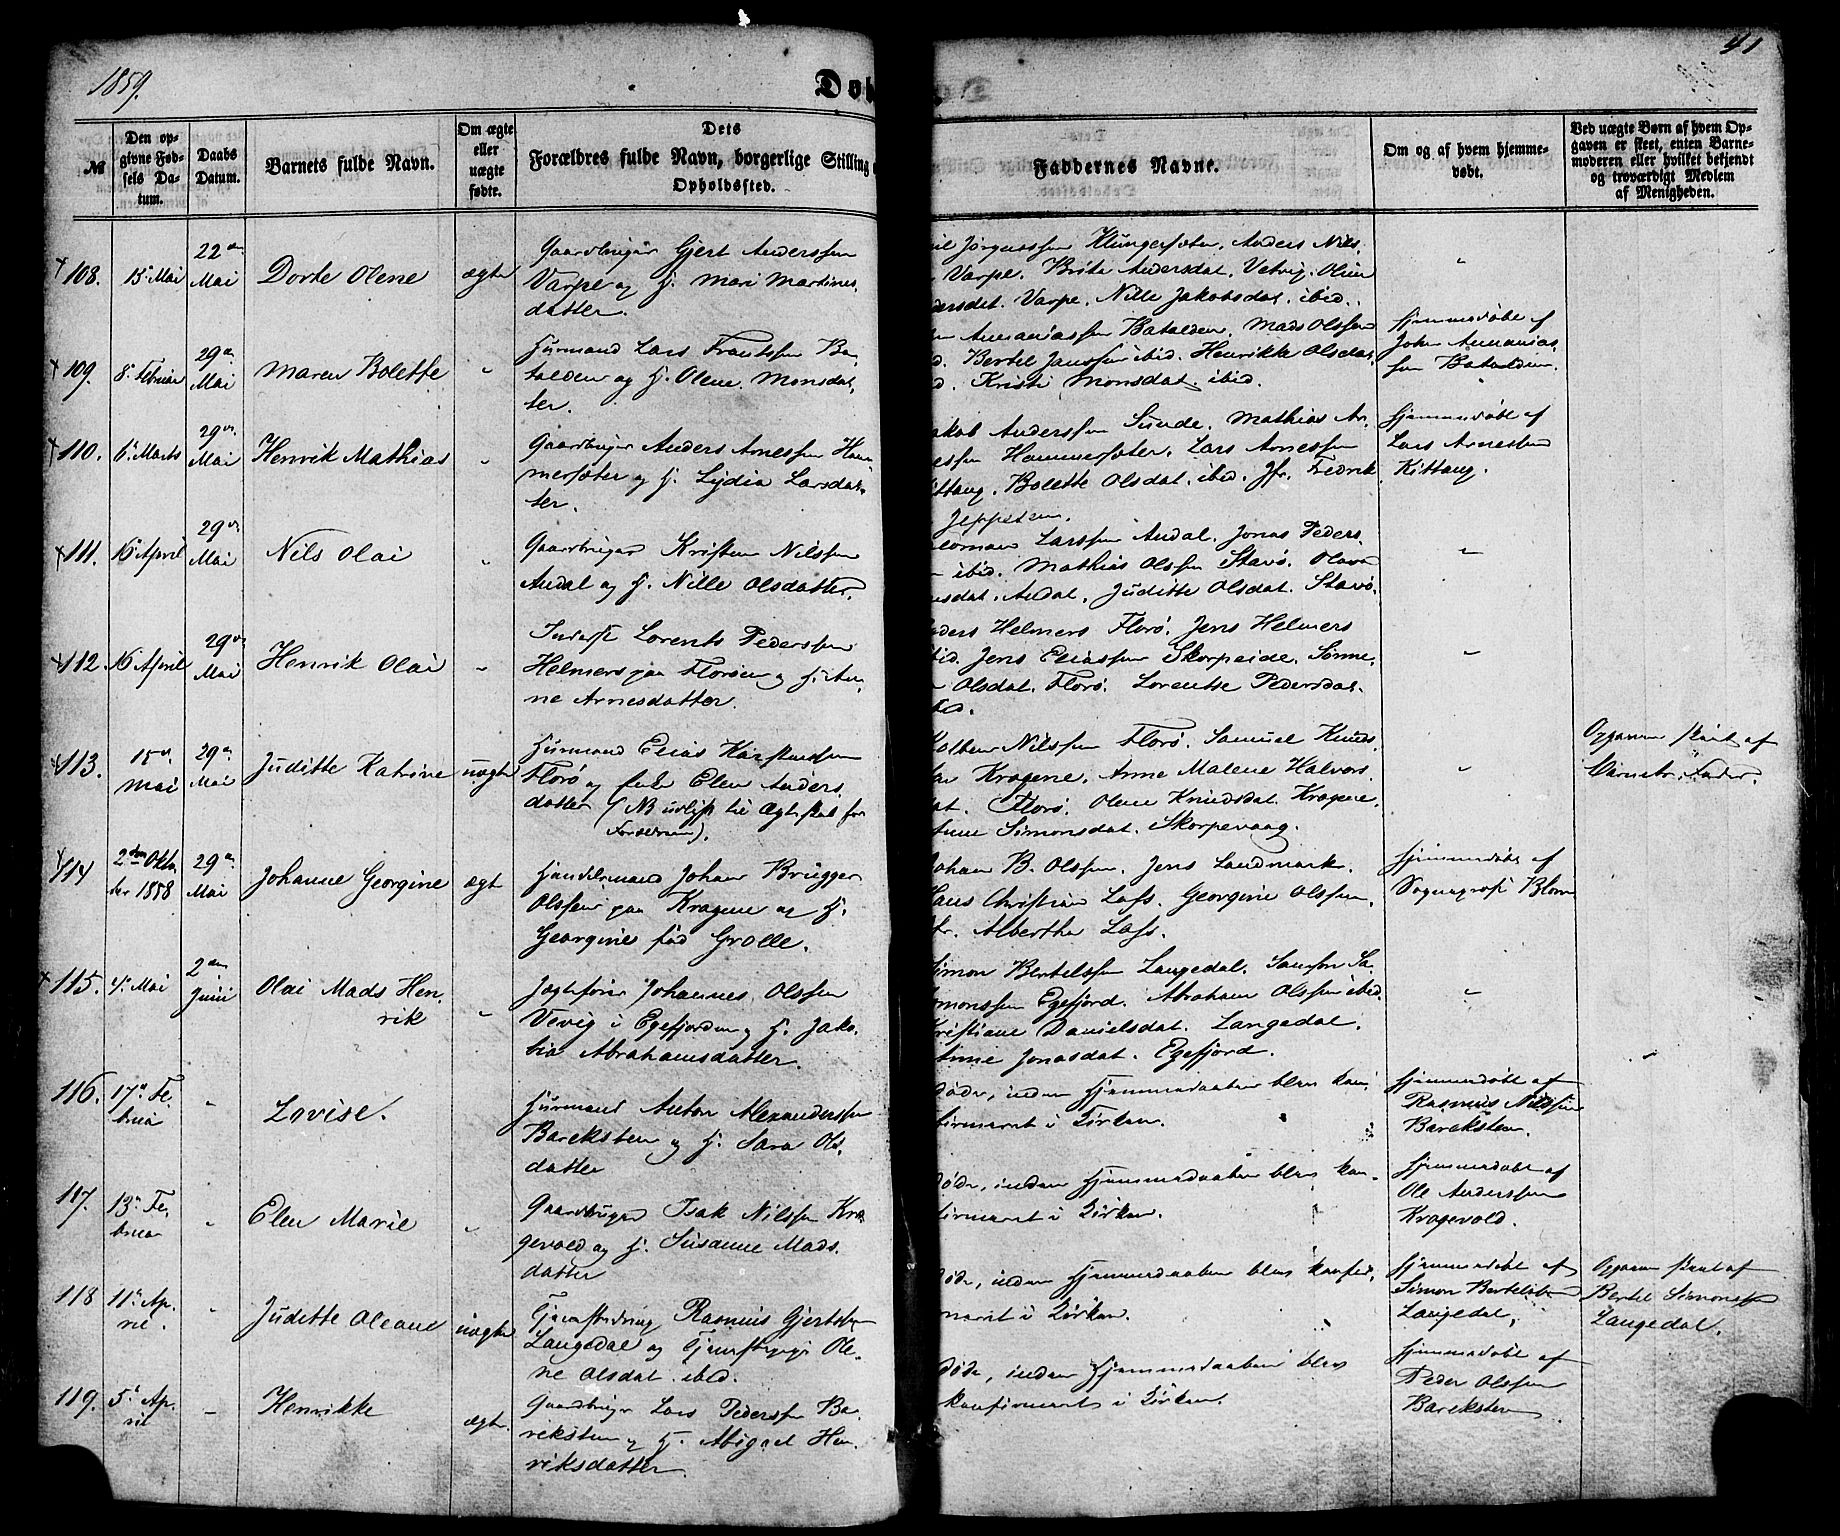 1859.
Døb
41
№
Den opgivne Fødsels Datum.
Daabs Datum.
Barnets fulde Navn.
Om ægte eller uægte fødte.
Dets Forældres fulde Navn, borgerlige Stilling
Opholdssted.
Faddernes Navne.
Om og af hvem hjemmedøbt.
Ved uægte Børn af hvem Opgaven er skeet, enten Barnemoderen eller hvilket bekjendt og troværdigt Medlem af Menigheden.
108.
15 Mai
22
Mai
Dorte Olene
ægte
Gaardbruger Gjert Anderssen
Varpe og H. Mari Martines
datter.
Jørgenssen Klungersæter. Anders Nils.
Varpe. Brite Andersdat. Vetvig. Oline
dersdat. Varpe. Nille Jakobsdat. ibid.
109.
8 Februar
29
Mai
Maren Bolette
"
Huusmand Lars Frantssen Ba
talden og H. Olene Monsdat
ter.
Annaniassen Batalden. Mads Olssen
Bertel Janssen ibid. Henrikke Olsdat.
Kristi Monsdat. ibid.
hjemmedøbt af
Johan Annanias
sen Batalden.
110.
6 Marts
29
Mai
Henrik Mathias
"
Gaardbruger Anders Arnessen Ham
mersæter og H. Lydia Larsdat
ter.
akob Anderssen Sunde. Mathias Ar
essen Hammersæter. Lars Arnessen
ittang. Bolette Olsdat. ibid. Jfr. Fredrik
Jeppesen.
hjemmedøbt af
Lars Arnessen
Kittang.
111.
16 April
29
Mai
Nils Olai
"
Gaardbruger Kristen Nilssen
Andal og H. Nille Olsdatter.
lomon Larssen Andal. Jonas Peders.
ibid. Mathias Olssen Stavø. Olava
nsdat. Andal. Juditte Olsdat. Stavø.
"
112.
16 April
29
Mai
Henrik Olai
"
Inderst Lorents Pederssen
Helmers paa Florøen og H. An
ne Arnesdatter.
nders Helmers Florø. Jens Helmers
ibid. Jens Eliassen Skorpeide. Sønne
Olsdat. Florø. Lorentse Pedersdat.
ibid.
"
113.
15
Mai
29
Mai
Juditte Katrine
uægte
Huusmand Elias Karstenssen
Florø og Elen Anders
datter (NB udlyst til Ægteskab for
Forældrene).
Nilssen Florø. Samuel Knuds
Kragene. Anne Malene Halvors
dat. Florø. Olene Knudsdat. Kragene.
Simonsdat. Skorpevaag.
"
Opgaven skeet af
Barnets Fader.
114
2den Okto
ber 1858
29
Mai
Johanne Georgine
ægte
Handelsmand Johan Brügger
Olssen paa Kragene og H.
Georgine fød Grolle.
Johan B. Olssen. Jens Landmark.
Hans Christian Lass. Georgine Olssen.
Fr. Albertha Lass.
hjemmedøbt af
Sogneprest Blom
115.
4 Mai
2
Juni
Olai Mads Hen
rik
"
Jægtefører Johannes Olssen
Vevig i Egefjorden og H. Jako
bia Abrahamsdatter.
Simon Bertelssen Langedal. Samson Sa
monssen Egefjord. Abraham Olssen ibid.
Kristiane Danielsdat. Langedal.
Stine Jonasdat. Egefjord.
"
116.
17 Fe
bruar
"
Lovise.
Huusmand Anton Alexanderssen
Bareksten og H. Sara Ols
datter
døde, inden Hjemmedaaben blev kon
firmeret i Kirken.
hjemmedøbt af
Rasmus Nilssen
Bareksten.
117.
13 Fe
bruar
"
Elen Marie
"
Gaardbruger Isak Nilssen Kra
gevold og H. Susanne Mads
datter
døde, inden Hjemmedaaben blev kon
firmeret i Kirken.
hjemmedøbt af
Ole Anderssen
Kragevold.
118
11 Ap
ril.
"
Juditte Oleane
uægte
Tjenestedreng Rasmus Gjertsen
Langedal og Tjenestepige Ole
ne Olsdat. ibid.
døde, inden Hjemmedaaben blev konfir
meret i Kirken.
hjemmedøbt af
Simon Bertelssen
Langedal.
Opgaven skeet af
Bertel Simonssen
Langedal.
119.
5 Ap
ril
"
Henrikke
ægte.
Gaardbruger Lars Pederssen Ba
reksten og H. Abigael Hen
riksdatter
døde, inden Hjemmedaaben blev
konfirmeret i Kirken.
hjemmedøbt af
Peder Olssen
Bareksten